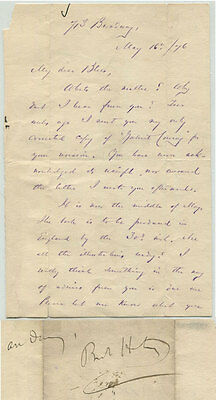 713 Broadway,
May 16th/76
My dear Bliss,
Whats the matter? Why
don't I hear from you? Two
weeks ago I sent you my only
corrected copy of "Gabriel Conroy" for
your revision. You have never ack-
nowledged its receipt, nor answered
the letter I wrote you afterwards.
It is now the middle of May.
The book is to be produced in
England by the 30th inst. Are
all the illustrations ready? I
really think something in the way
of advices from you is due me
Please let me know what you
are doing
Bret Harte